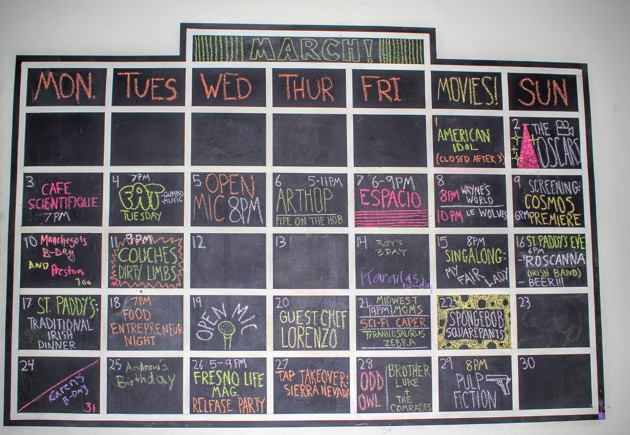 MARCH!
MON. TUES WED THUR FRI MOVIES! SUN
1
AMERICAN
IDOL
(CLOSED AFTER 3)
2
THE
OSCARS
3
CAFE
SCIENTIFIQUE
7PM
4
7PM
FAT
GUMBO
MUSIC
TUESDAY
5
OPEN
MIC 8PM
6
5-11PM
ARTHOP
PIPE ON THE HOB
7 6-9PM
ESPACIO
8
8PM WAYNES WORLD
10PM LE WOLVES
9
SCREENING:
COSMOS
6PM PREMIERE
10 Manchego's
B-Day
AND Preston
Too
11 9PM
COUCHES
DIRTY LIMBS
12
13
14
Roy's
BDAY
15 8PM
SINGALONG:
MY FAIR LADY
16 ST PADDY'S EVE
6PM
ROSCANNA
(IRISH BAND)
BEER!!!
17 ST. PADDY'S:
TRADITIONAL
IRISH
DINNER
18 7PM
FOOD
ENTREPRENEUR
NIGHT
19
OPEN MIC
20
GUEST CHEF
LORENZO
21 MIDWEST
9PM MOMS
SCI-FI CAPER
TYRANNOSAURUS
ZEBRA
22
SPONGEBOB
SQUAREPANTS
23
24
Karen's
B-DAY
31
25 Andrew's
Birthday
26 5-9PM
FRESNO LIFE
MAG.
RELEASE PARTY
27
TAP TAKEOVER:
SIERRA NEVADA
28
ODD
OWL
BROTHER
LUKE
& THE
COMRADES
29 8PM
PULP
FICTION
30